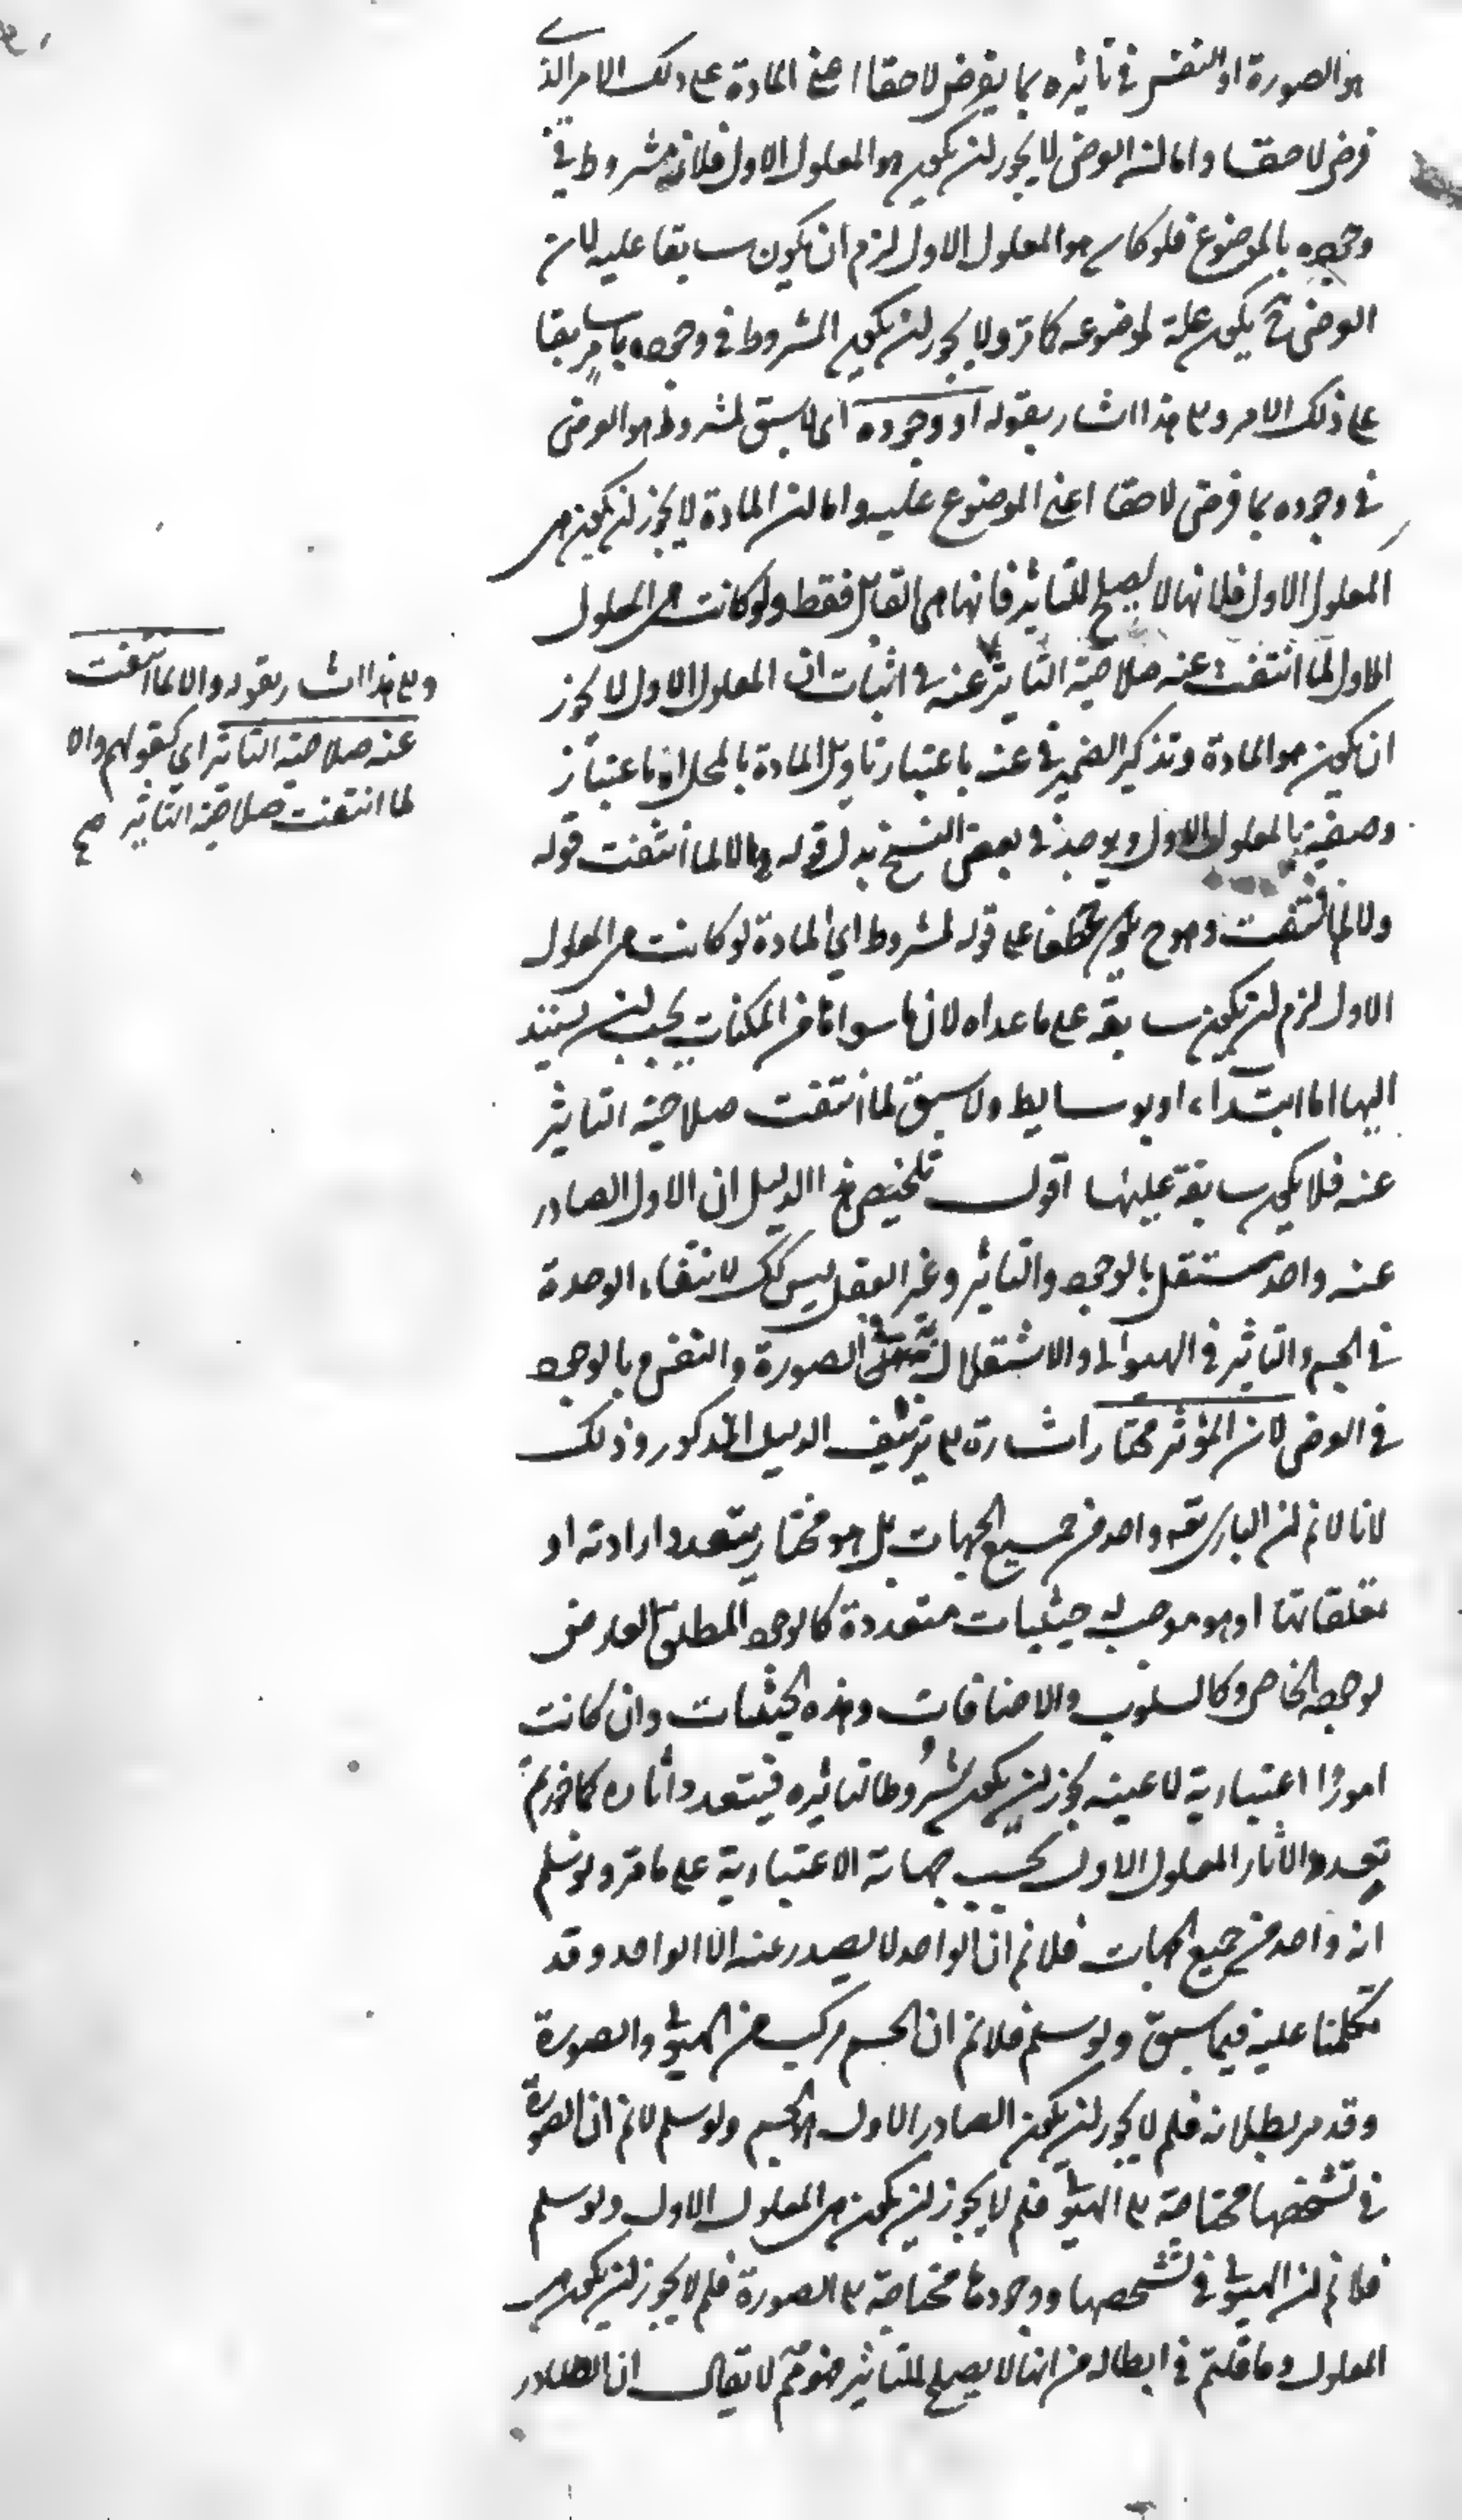 هو الصورة او النفس في تاثيره بما يفرض لاحقا اعني المادة على ذلك الامر الذي
فرض لاحقا واما ان العرض لا يجوز ان يكون هو المعلول الاول فلانه مشروط في
وجوده بالموضوع فلو كان هو المعلول الاول لزم ان يكون سابقا عليه لان
العرض ح يكون علة لموضوعه كما مر ولا يجوز ان يكون المشروط في وجوده بامر سابقا
على ذلك الامر والى هذا اشار بقوله او وجوده اي لا سبق لمشروط هو العرض
في وجوده بما فرض لاحقا اعني الموضوع عليه واما ان المادة لا يجوز ان يكون هي
المعلول الاول فلانها لا يصلح للتاثير فانها هي القابل فقط ولو كانت هي المعلول
الاول لما انتفت عنه صلاحية التاثير عنه في اثبات ان المعلول الاول لا يجوز
ان يكون هو المادة وتذكير الضمير في عنه باعتبار تاويل المادة بالمحل او باعتبار
وصفية بالمعلول الاول ويوجد في بعض النسخ بدل قوله والا لما انتفت قوله
ولا لما انتفت وهو ح عطف على قوله لمشروط اي المادة لو كانت هي المعلول
الاول لزم ان يكون سابقة على ما عداه لان ما سواها من الممكنات يجب ان يستند
اليها اما ابتداء او بوسايط ولا سبق لما انتفت صلاحية التاثير
عنه فلا يكون سابقة عليها اقول تلخيص هذا الدليل ان الاول الصادر
عنه واحد مستقل بالوجود والتاثير وغير العقل ليس كك لانتفاء الوحدة
في الجسم والتاثير في الهيولى والاستقلال الصورة والنفس وبالوجود
في العرض لان المؤثر مختار اشارة الى تزييف الدليل المذكور وذلك
لانا لا نم ان الباري تعه واحد من جميع الجهات بل هو مختار يتعدد ارادته او
تعلقاتها او هو موجب له حيثيات متعددة كالوجود المطلق العارض
لوجوده الخاص وكالسلوب والاضافات وهذه الحيثيات وان كانت
امورا اعتبارية لا عينيه يجوز ان يكون شروطا لتاثيره فيتعدد اثاره كما جوزتم
تعدد الاثار المعلول الاول بحسب جهاته الاعتبارية على ما مر ولو سلم
انه واحد من جميع الجهات فلا نم ان الواحد لا يصدر عنه الا الواحد وقد
تكلمنا عليه فيما سبق ولو سلم فلا نم ان الجسم مركب من الهيولى والصورة
وقد مر بطلانه فلم لا يجوز ان يكون الصادر الاول هو الجسم ولو سلم لا نم ان الصورة
في تشخصها محتاجة الى الهيولى فلم لا يجوز ان يكون هي المعلول الاول ولو سلم
فلا نم ان الهيولى في تشخصها ووجودها محتاجة الى الصورة فلم لا يجوز ان يكون هي
المعلول وما قلتم في ابطاله من انها لا يصلح للتاثير فهو مم لا يقال ان الصادر
والى هذا اشار بقوله والا لما انتفت
عنه صلاحية التاثير اي كقولهم والا
لما انتفت صلاحية التاثير صح